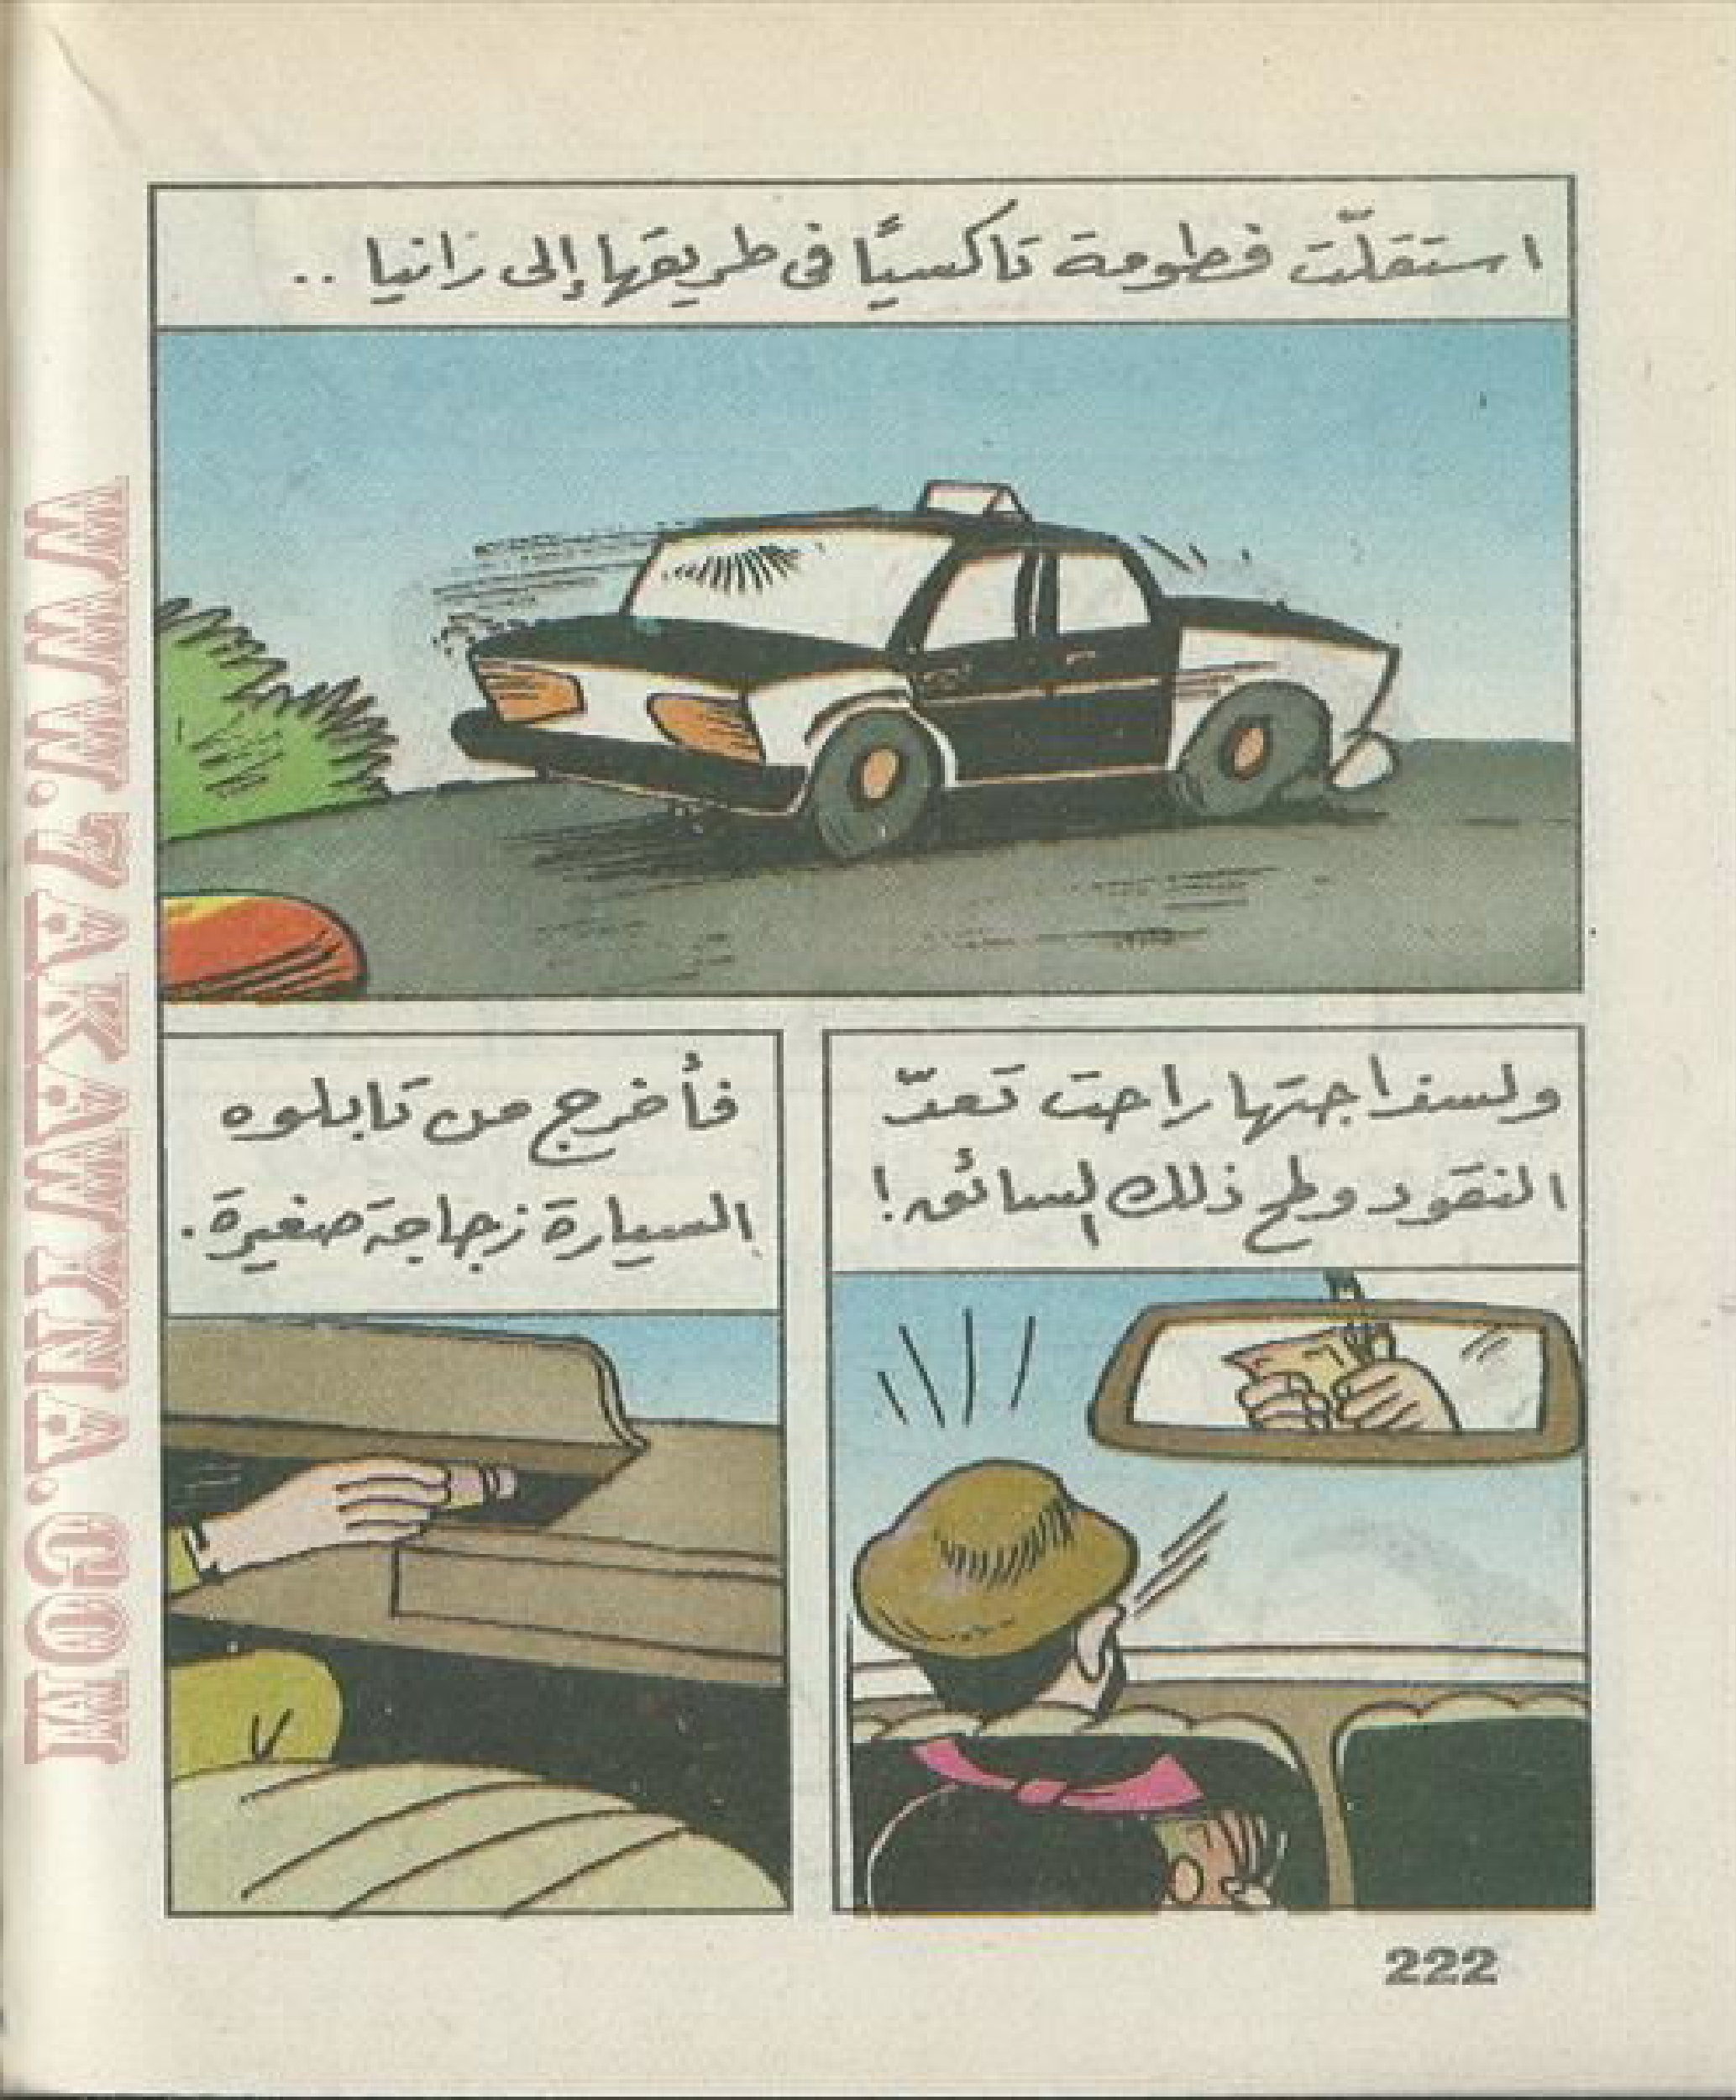 استقلّت فطومة تاكسيًا فى طريقها إلى رانيا ..
ولسذاجتها راحت تعدّ
النقود ولمح ذلك السائق !
فأخرج من تابلوه
السيارة زجاجة صغيرة .
222
WWW.7AKAWATNA.COM